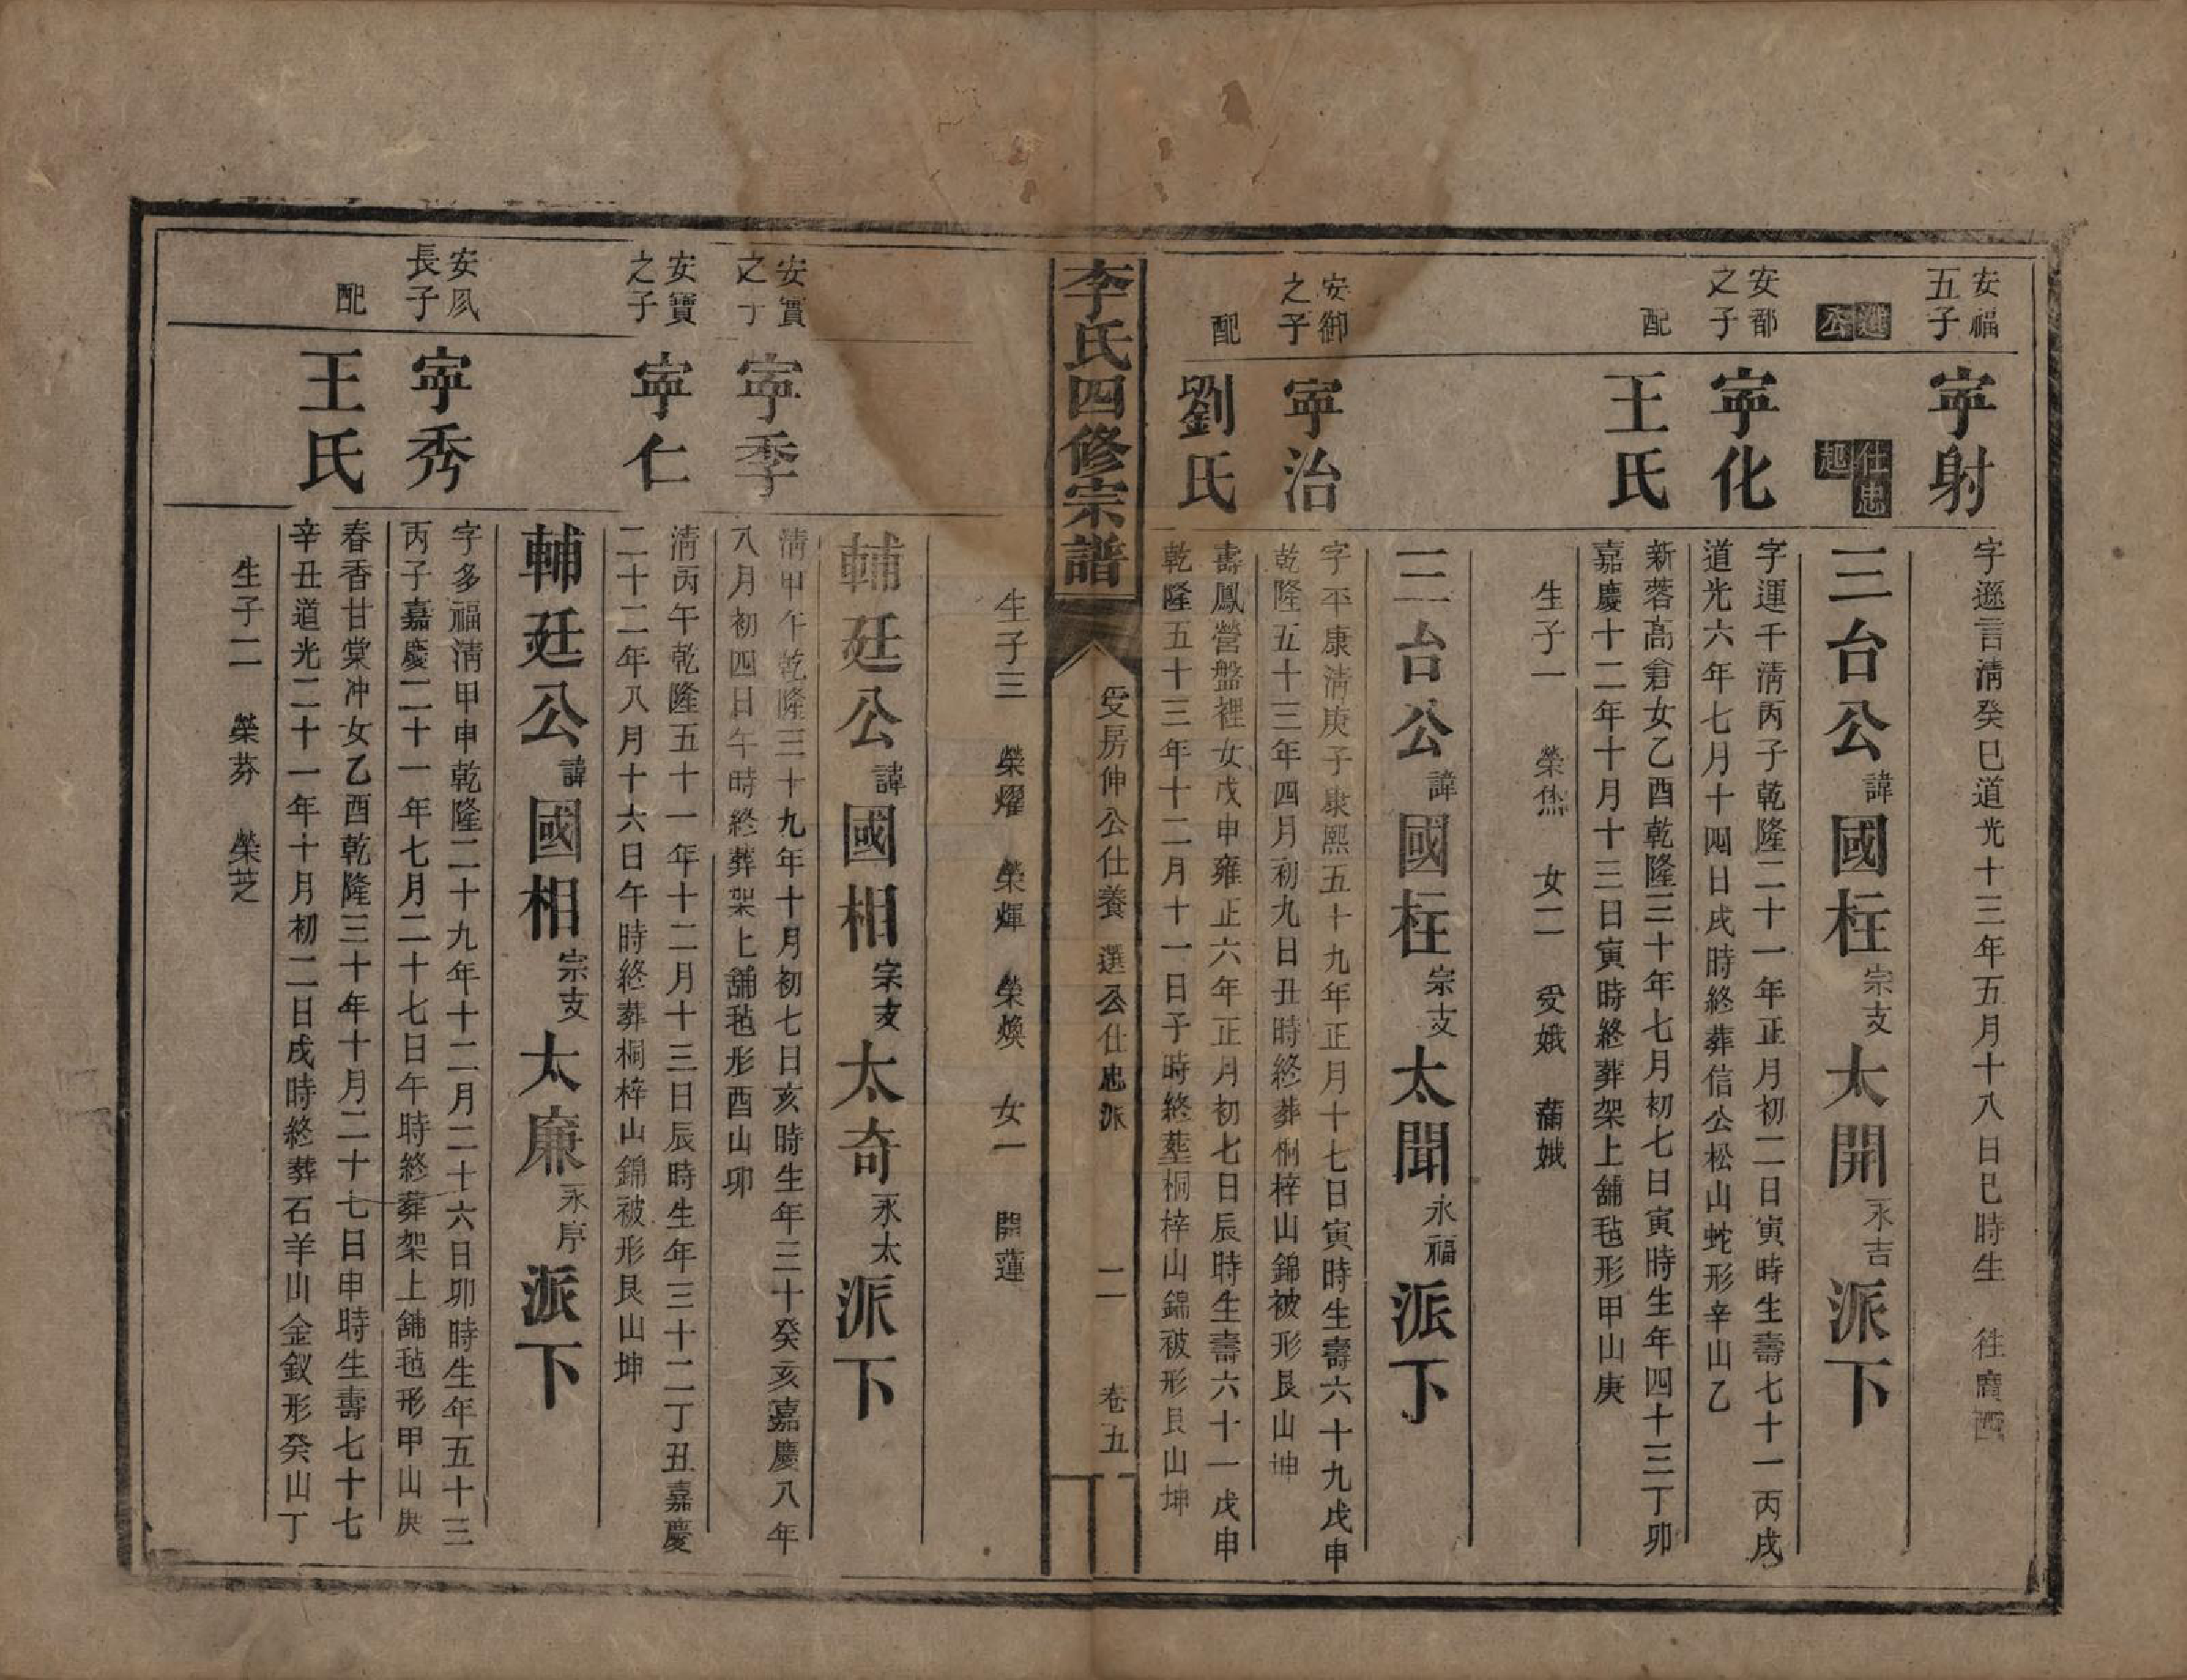 安福
五子
寕射
字遜言淸癸巳道光十三年五月十八日巳時生 徃廣西
進公
仕忠
起
三台公諱國柱宗支太開永吉派下
安都
之子
寕化
字運千淸丙子乾隆二十一年正月初二日寅時生壽七十一丙戌
道光六年七月十四日戌時終葬信公松山蛇形辛山乙
配
王氏
新蓉高倉女乙酉乾隆三十年七月初七日寅時生年四十三丁卯
嘉慶十二年十月十三日寅時終葬架上舖毡形甲山庚
生子一 榮烋 女二 受娥 蒲娥
三台公諱國柱宗支太聞永福派下
安御
之子
寕治
字平康淸庚子康熙五十九年正月十七日寅時生壽六十九戊申
乾隆五十三年四月初九日丑時終葬桐梓山錦被形艮山坤
配
劉氏
壽鳳營盤裡女戊申雍正六年正月初七日辰時生壽六十一戊申
乾隆五十三年十二月十一日子時終塟桐梓山錦被形艮山坤
李氏四修宗譜
受房伸公仕養 選公仕忠派
二
卷五
生子三 榮燿 榮煇 榮煥 女一 開蓮
輔廷公諱國相宗支太奇永太派下
安實
之子
寕季
淸甲午乾隆三十九年十月初七日亥時生年三十癸亥嘉慶八年
八月初四日午時終葬架上舖毡形酉山卯
安寶
之子
寕仁
淸丙午乾隆五十一年十二月十三日辰時生年三十二丁丑嘉慶
二十二年八月十六日午時終葬桐梓山錦被形艮山坤
輔廷公諱國相宗支太廉永序派下
安夙
長子
寕秀
字多福淸甲申乾隆二十九年十二月二十六日卯時生年五十三
丙子嘉慶二十一年七月二十七日午時終葬架上舖毡形甲山庚
配
王氏
春香甘棠冲女乙酉乾隆三十年十月二十七日申時生壽七十七
辛丑道光二十一年十月初二日戌時終葬石羊山金釵形癸山丁
生子二 榮芬 榮芝